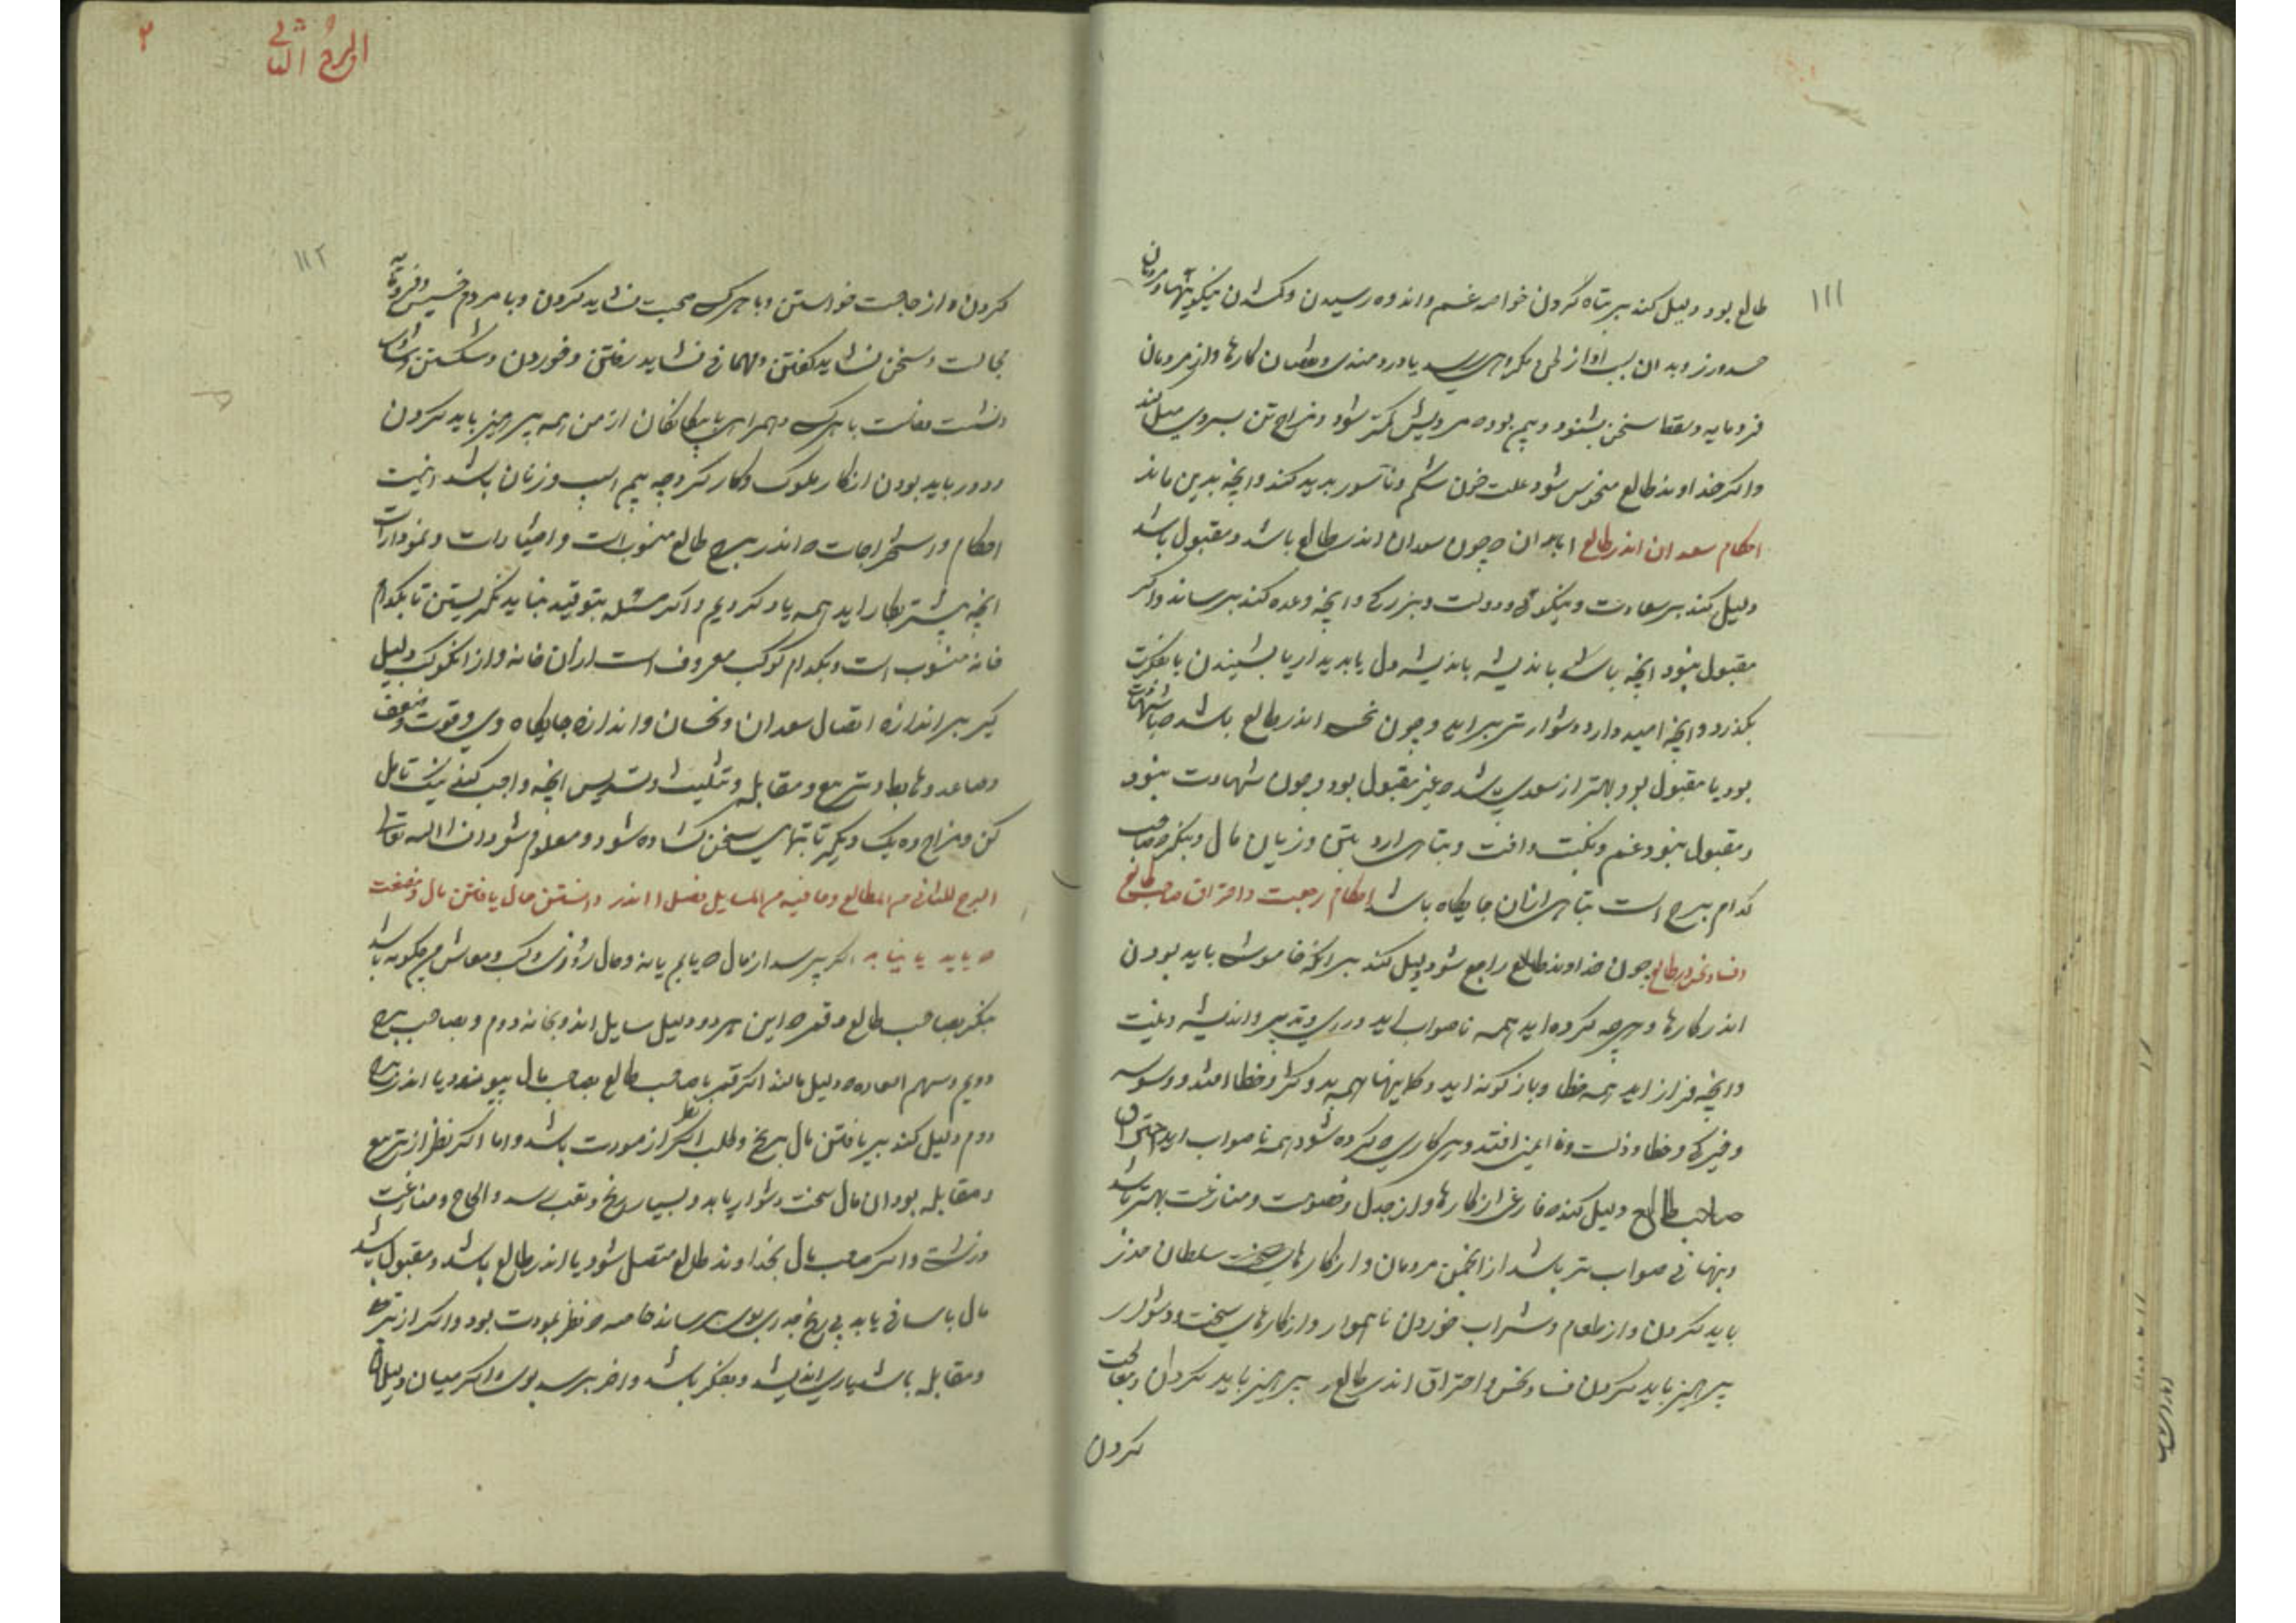 ۱۱۱
طالع بود دلیل کند بر تباه کردن خواسته غم و اندوه رسیدن و کشدن نیکویتها و مردمان
حسد ورزد و بدان سبب آواز طی و مکروهی رسد یا دردمندی و نقصان کارها و از مردمان
فرومایه و سقط سخن بشنود و بیم بود درویش گمتر شود و مزاج تن بسردی میل کند
و اکر خداوند طالع منحوس شود علت خون شکم و ناسور پدید کند و انچه بدین ماند
احکام سعدان اندر طالع اما بدان چون سعدان اندر طالع باشد و مقبول باشد
دلیل کند بر سعادت و نیکوئی و دولت و بزرگی و انچه وعده کند برساند و اکر
مقبول نبود انچه باسانی باندیشه باندیشه دل یا بدیدار یا بشنیدن یا بفکرت
بکذرد و انچه امید دارد دشوارتر براید و چون نحس اندر طالع باشد صاحب شهادت
بود یا مقبول بود بهتر از سعدی باشد غیر مقبول بود و چون شهادت نبود
و مقبول نبود غم و نکبت و افت و تباهی ارد بتن و زیان مال و بنکر صاحب
کدام برج است تباهی ازان جایگاه باشد احکام رجعت و احتراق صاحب طالع
و فساد نحس در طالع چون خداوند طالع راجع شود دلیل کند بر انکه خاموش باید بودن
اندر کارها و هرچه کرده اید همه ناصواب اید و رای و تدبیر و اندیشه و نیت
و انچه فراز اید همه خطا و بازکونه اید و کارینها همه بد و کژ و خطا افتد و وسوسه
و خیرکی و خطا و زلت و نا ایمنی افتد و هر کاری که کرده شود همه ناصواب اید احتراق
صاحب طالع دلیل کند فارغی از کارها و از جدل و خصومت و منازعت بهتر باشد
و تنهائی صواب تر باشد از انجمن مردمان و از کارهای سلطان حذر
باید کردن و از طعام و شراب خوردن ناهموار و از کارهای سخت و دشوار
پرهیز باید کردن فساد نحس و احتراق اندر طالع پرهیز باید کردن و معالجت
کردن
۲
البرج الثانی
۱۱۲
کردن و از حاجت خواستن و با هرکس صحبت نشاید کردن و با مردم خسیس و فرومایه
مجالست و سخن نشاید کفتن و مهمانی نشاید رفتن و خوردن و شکستن
و نشست و خاست با هرکس و همراهی با بیگانگان از من همه پرهیز باید کردن
و دور باید بودن از کار ملوک و کارکرد چه بیم اسب و زنان باشد اینست
احکام و استخراجات اندر برج طالع منسوبست و اختیارات و نمودارات
انچه پیشتر بکار اید همه یاد کردیم و اکر مسئله بتو قید بباید نکریستن تا بکدام
خانه منسوب است و بکدام کوکب معروف است ازان خانه و از انکوکب دلیل
گیر بر اندازه اتصال سعدان و نحسان و اندازه جایگاه وی و قوت و ضعف
و صاعد و هابط و تربیع و مقابله و تثلیث و تسدیس انچه واجب کنی نیک تامل
کن و مزاج ده یک دیکر تا بتو ای سخن کشاده شود و معلوم شود انشاالله تعالی
البرج الثانی من المطالع و ما فیه من المسایل فصل ا اندر دانستن حال یافتن مال و منفعت
که یابد یا نیابد اکر پرسد از مال که یابم یا نه و حال روزی و کسب و معاش من چکونه باشد
بنکر بصاحب طالع و قمر که این هردو دلیل سایل اند و بخانه دوم و بصاحب برج
دویم و سهم السعاده دلیل مالند اکر قمر یا صاحب طالع بصاحب مال پیوندد یا اندر برج
دوم دلیل کند بر یافتن مال برنج و طلب اکر نظر از مودت باشد و اما اکر نظر از تربیع
و مقابله بود ان مال سخت دشوار یابد و بسیار رنج و تعب رسد و الحاح و منازعت
و زشت و اکر صاحب مال بخداوند طالع متصل شود یا اندر طالع باشد و مقبول باشد
مال باسانی یابد بی رنج خود بوی رساند خاصه که نظر بمودت بود و اکر از تربیع
و مقابله باشد یاری اندیشد و بفکر باشد و اخر برسد بوی و اکر میان دلیلان